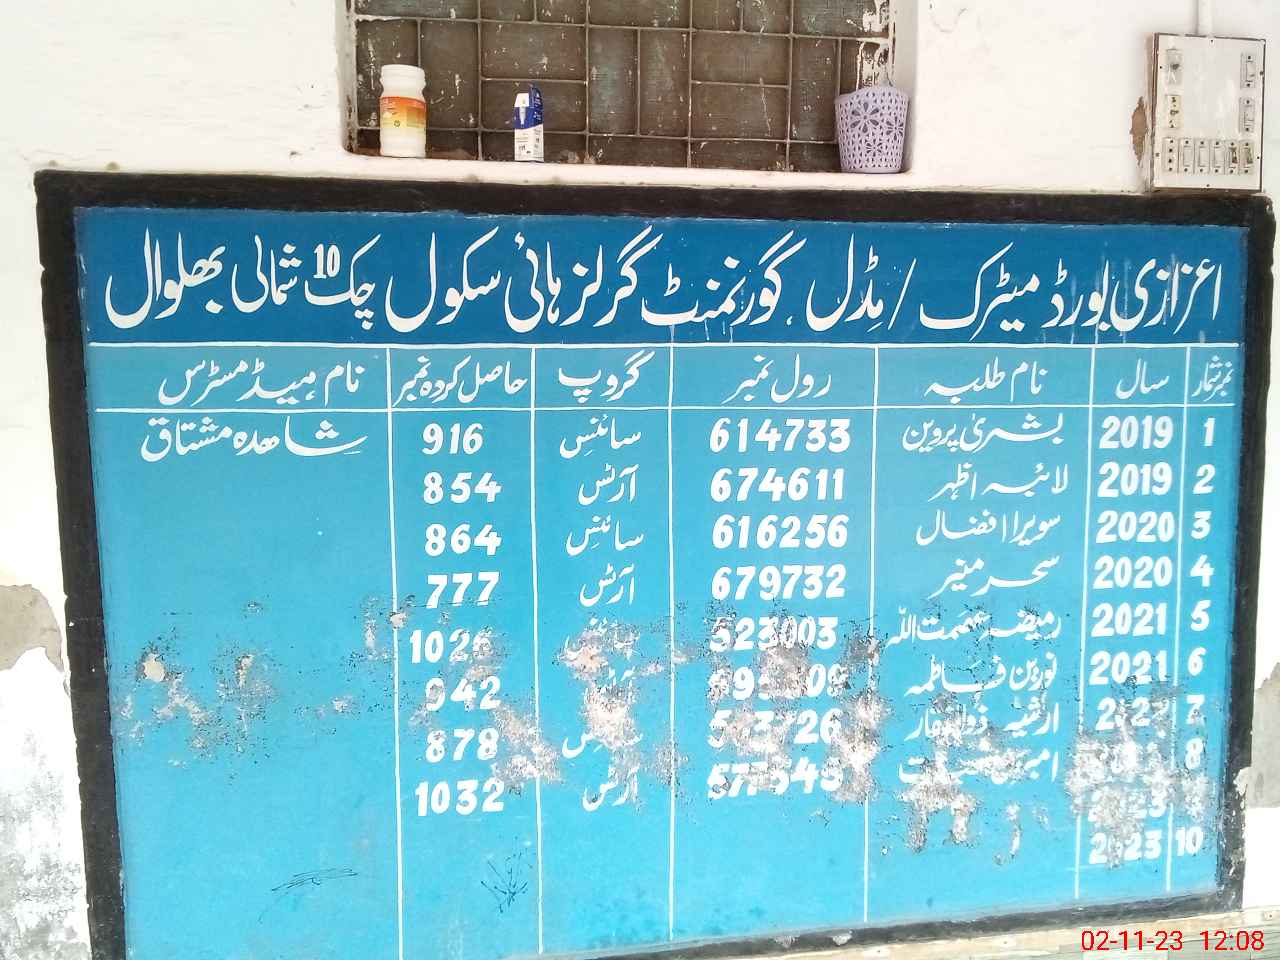 اعزازی بورڈ میٹرک / مڈل گورنمنٹ گرلز ہائی سکول چک 10 شمالی بھلوال
نمبر شمار سال نام طلبہ رول نمبر گروپ حاصل کردہ نمبر نام ہیڈ مسٹرس
1 2019 بشریٰ پروین 614733 سائنس 916 شاھدہ مشتاق
2 2019 لائبہ اظہر 674611 آرٹس 854
3 2020 سویرا افضال 616256 سائنس 864
4 2020 سحر منیر 679732 آرٹس 777
5 2021 رمیضہ عصمت اللہ سائنس
6 2021 نورین فاطمہ آرٹس 942
7 ارشیہ ذوالفقار سائنس 878
8 آرٹس 1032
2023
10 2023
02-11-23 12:08